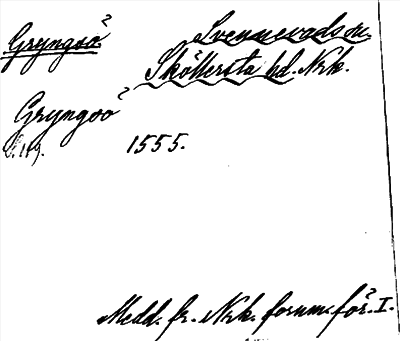 Gryngsö? Svennevads sn.
Sköllersta hd. Nrk.
Gryngoo?
s. 119. 1555.
Medd. fr. Nrk. fornm.för. I.